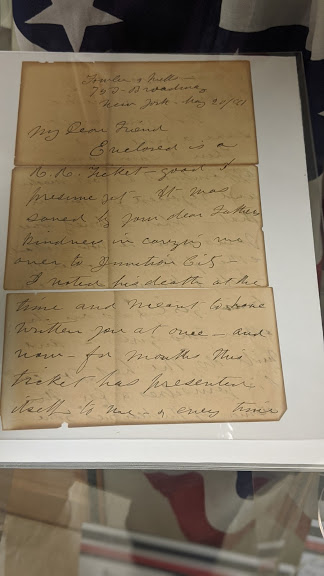 Fowler & Wells —
753 Broadway
New York. May 28/81
My Dear Friend
Enclosed is a
R. R. Ticket — good I
presume yet — It was
saved by your dear Fathers
kindness in carrying me
over to Junction City —
I noted his death at the
time and meant to have
written you at once — and
now — for months this
ticket has presented
itself to me — & every time